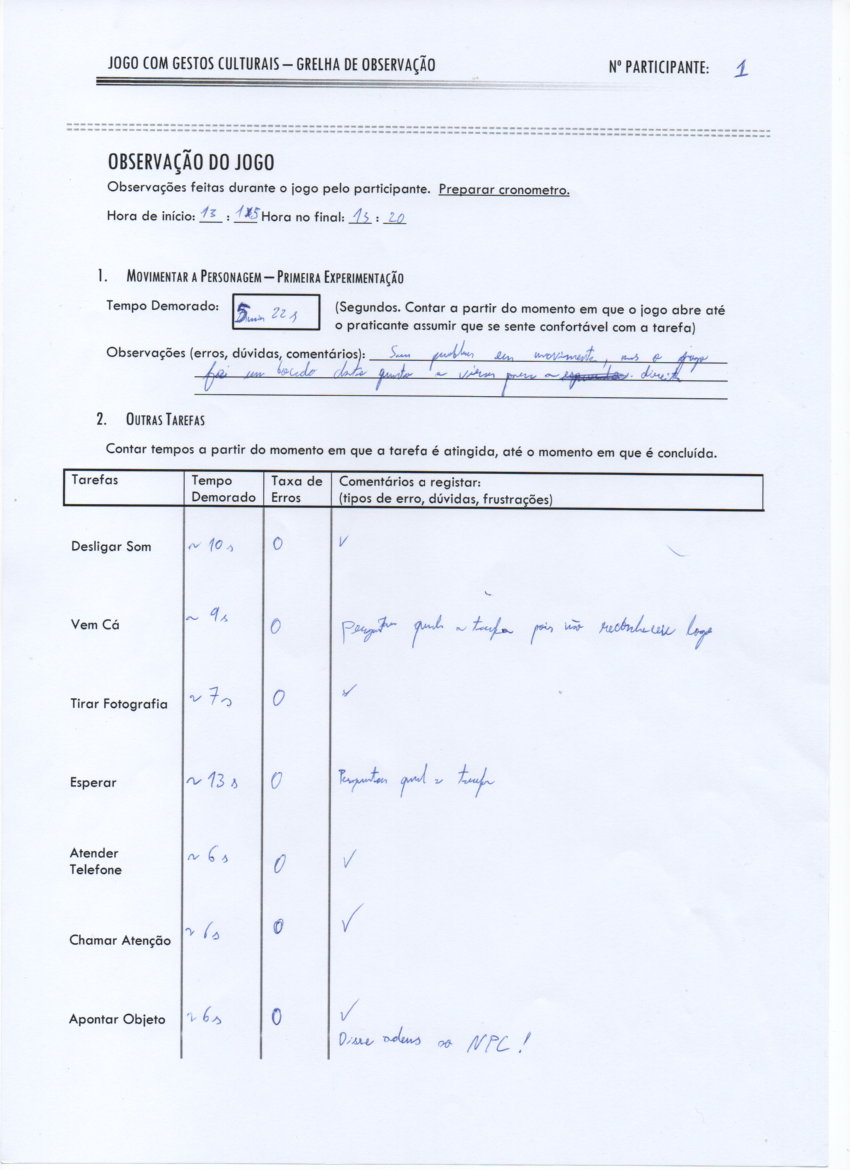 JOGO COM GESTOS CULTURAIS – GRELHA DE OBSERVAÇÃO Nº PARTICIPANTE: 1
OBSERVAÇÃO DO JOGO
Observações feitas durante o jogo pelo participante. Preparar cronometro.
Hora de início: 13 : 15 Hora no final: 13 : 20
1. MOVIMENTAR A PERSONAGEM – PRIMEIRA EXPERIMENTAÇÃO
Tempo Demorado: 5min 22 s (Segundos. Contar a partir do momento em que o jogo abre até
o praticante assumir que se sente confortável com a tarefa)
Observações (erros, dúvidas, comentários): Sem em movimento, mas o jogo
foi um bocado quanto a virar para a direita
2. OUTRAS TAREFAS
Contar tempos a partir do momento em que a tarefa é atingida, até o momento em que é concluída.
Tarefas Tempo Demorado Taxa de Erros Comentários a registar:
(tipos de erro, dúvidas, frustrações)
Desligar Som ~ 10 s 0 ✓
Vem Cá ~ 9s 0 a tarefa pois não reconheceu logo
Tirar Fotografia ~ 7s 0 ✓
Esperar ~ 13 s 0 Perguntou qual a tarefa
Atender Telefone ~ 6 s 0 ✓
Chamar Atenção ~ 6s 0 ✓
Apontar Objeto ~ 6s 0 ✓
Disse adeus ao NPC!